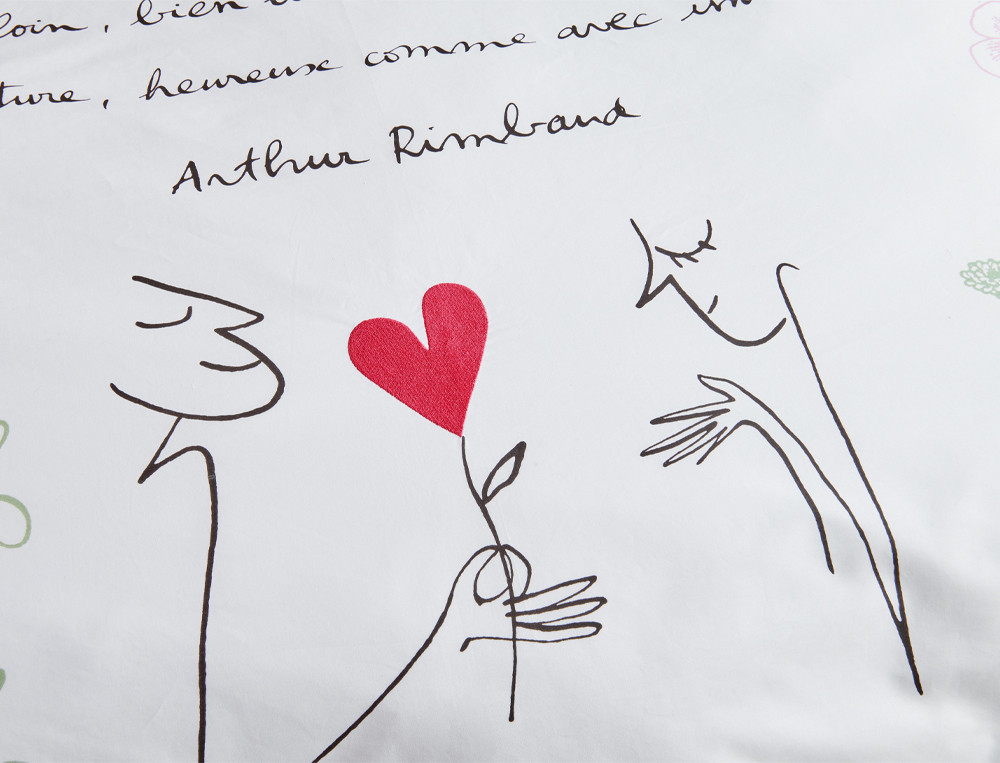 loin, bien
ture, heureux comme avec
Arthur Rimbaud